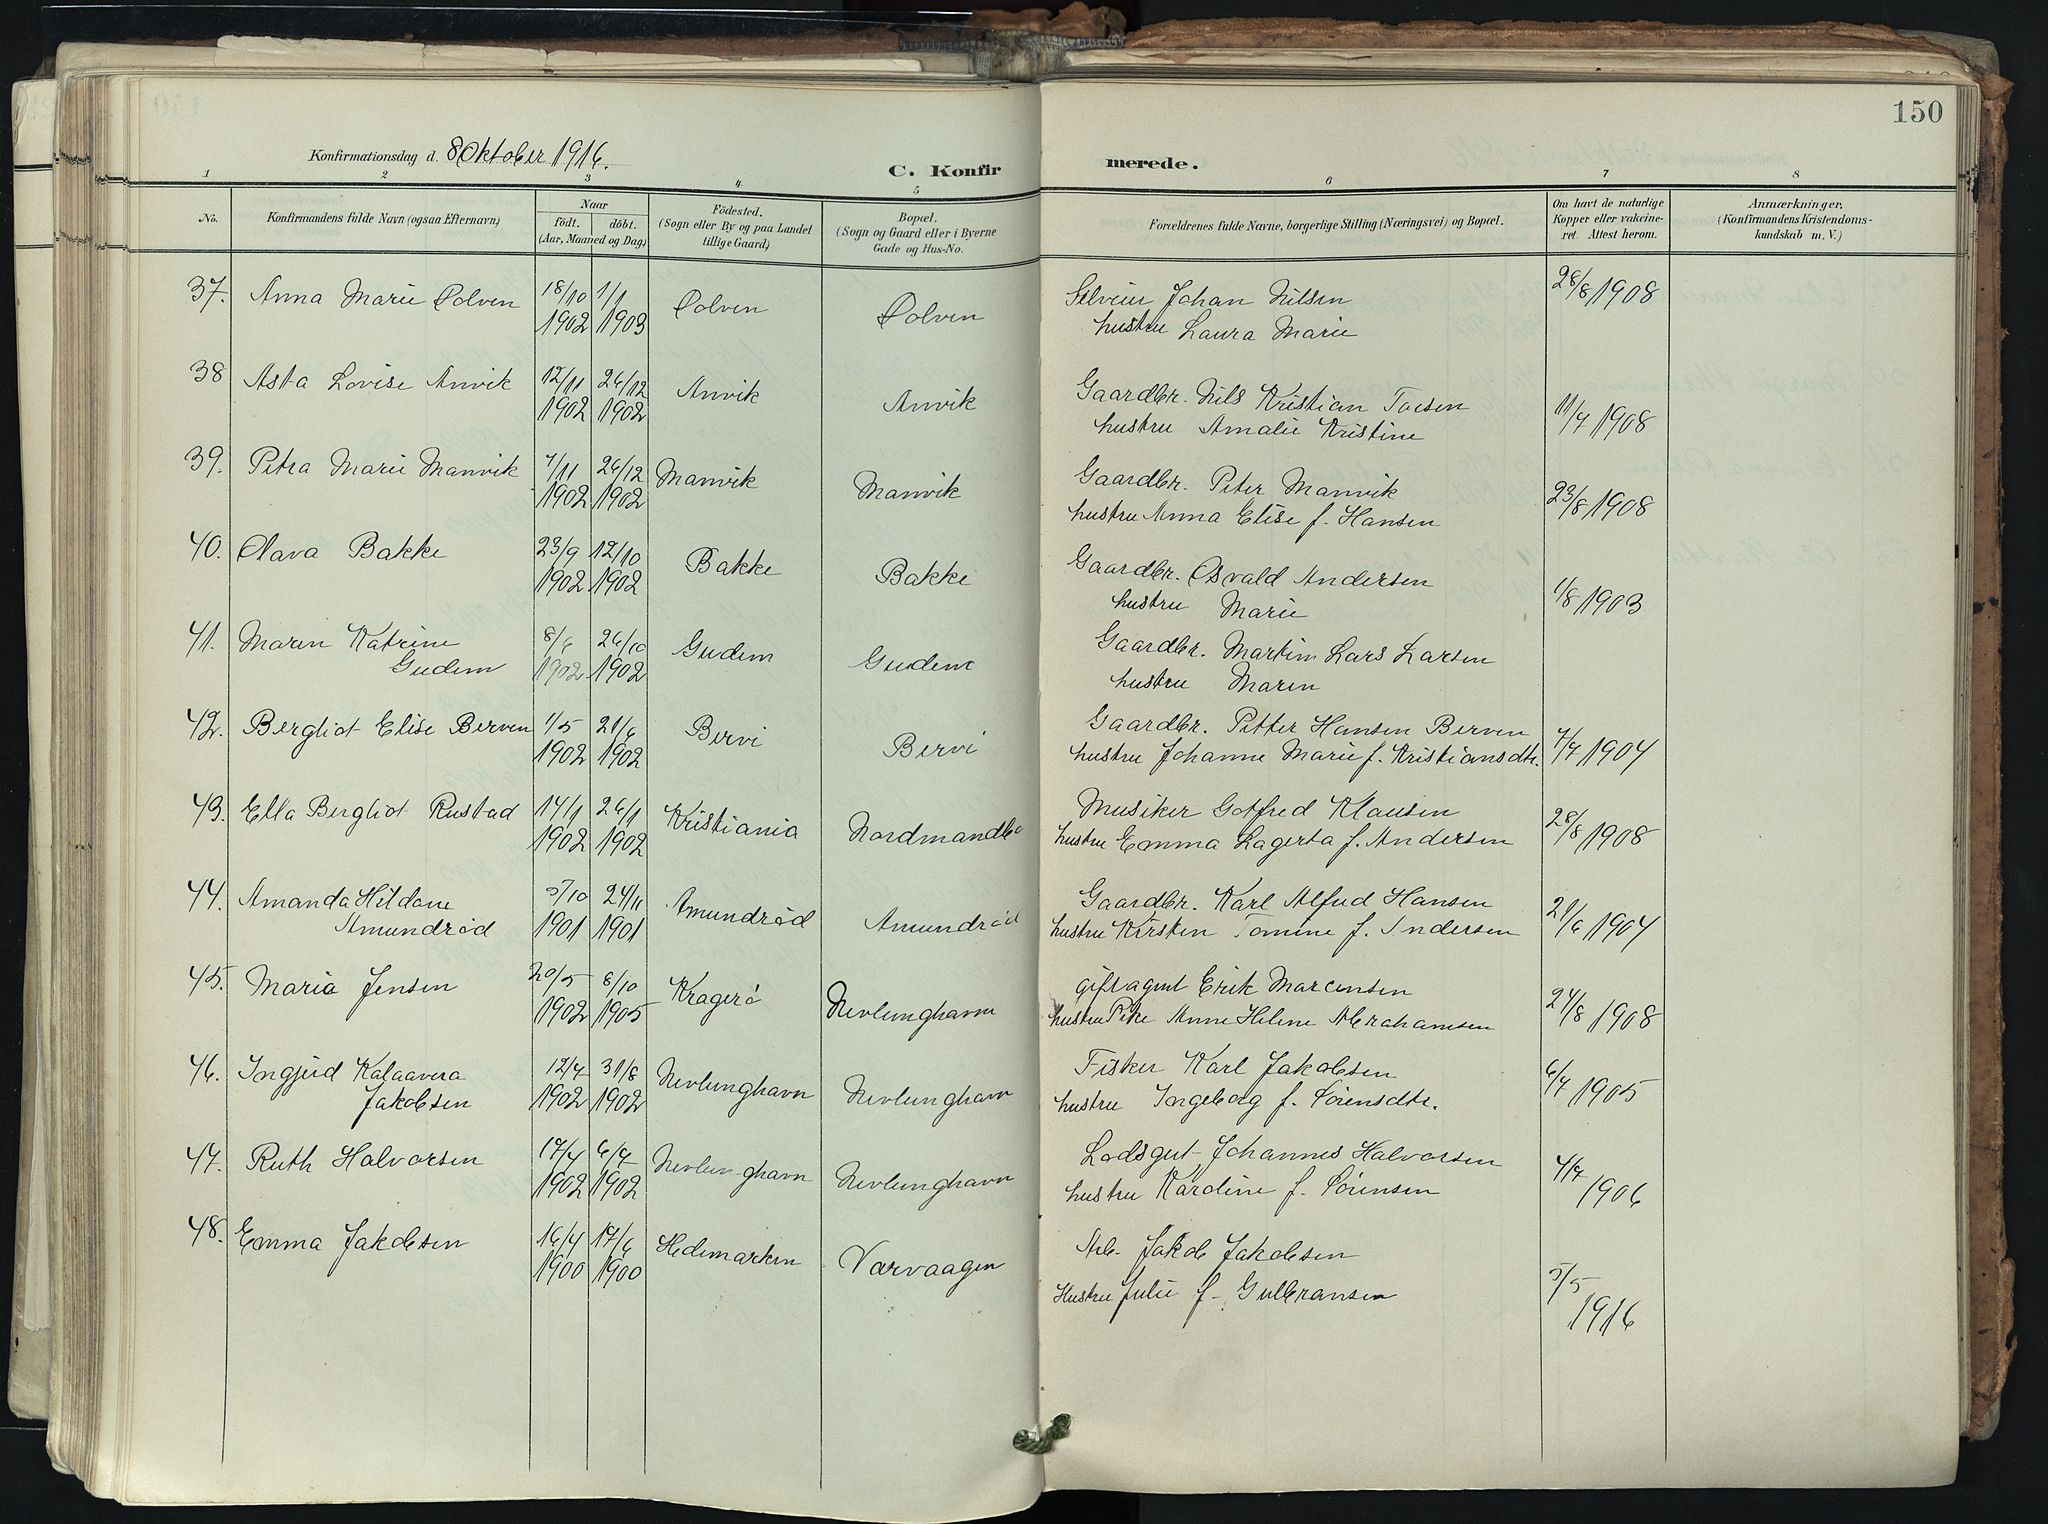 150
Konfirmationsdag d. 8 Oktober 1916.
C. Konfirmerede.
1 2 3 4 5 6 7 8
No.
Konfirmandens fulde Navn (ogsaa Efternavn)
Naar
födt. döbt.
(Aar, Maaned og Dag)
Födested.
(Sogn eller By og paa Landet
tillige Gaard)
Bopæl.
(Sogn og Gaard eller i Byerne
Gade og Hus-No.
Forældrenes fulde Navne, borgerlige Stilling (Næringsvei) og Bopæl.
Om havt de naturlige
Kopper eller vakcine-
ret. Attest herom.
Anmærkninger.
(Konfirmandens Kristendoms-
kundskab m. V.)
37. Anna Marie Oolven 18/10 1/1 Oolven Oolven Johan Nilsen 28/8 1908
1902 1903 hustru Laura Marie
38 Asta Lovise Anvik 12/11 26/12 Anvik Anvik Gaardbr. Nils Kristian
1902 1902 hustru Amalie Kristine 11/7 1908
39. Petra Marie Manvik 7/11 26/12 Manvik Manvik Gaardbr. Peter Manvik
1902 1902 hustru Anna Elise f. Hansen 23/8 1908
40. Olava Bakke 23/9 12/10 Bakke Bakke Gaardbr. Osvald Andersen
1902 1902 hustru Marie 1/8 1903
41. Maren Katrine 8/6 26/10 Gudem Gudem Gaardbr. Martin Lars Larsen
Gudem 1902 1902 hustru Maren
42. Bergliot Elise Berven 1/5 21/6 Bervi Bervi Gaardbr. Petter Hansen Berven
1902 1902 hustru Johanne Marie f. Kristiansdtr. 7/7 1904
43. Ella Bergliot Rustad 14/1 26/1 Kristiania Musiker Gotfred Klausen
1902 1902 hustru Emma Lagerta f. Andersen 28/8 1908
44. Amanda Hildane 5/10 24/11 Amundröd Amundröd Gaardbr. Karl Alfred Hansen
Amundröd 1901 1901 hustru Kirsten Tomine f. Andersen 21/6 1904
45. Maria Jensen 20/5 8/10 Kragerö Nevlunghavn gift agent Erik
1902 1905 Anne Helene Abrahamsen 24/8 1908
46. Ingjerd Kalaavera 12/7 31/8 Nevlunghavn Nevlunghavn Fisker Karl Jakobsen
Jakobsen 1902 1902 hustru Ingeborg f. Sörensdtr. 6/7 1905
47. Ruth Halvorsen 17/4 6/7 Nevlunghavn Nevlunghavn Lodsgut Johannes Halvorsen
1902 1902 hustru Kardine f. Sörensen 4/7 1906
48. Emma Jakobsen 16/4 17/6 Hedemarken Varvaagen Arb. Jakob Jakobsen
1900 1900 Hustru Julie f. Gulbransen 5/5 1916